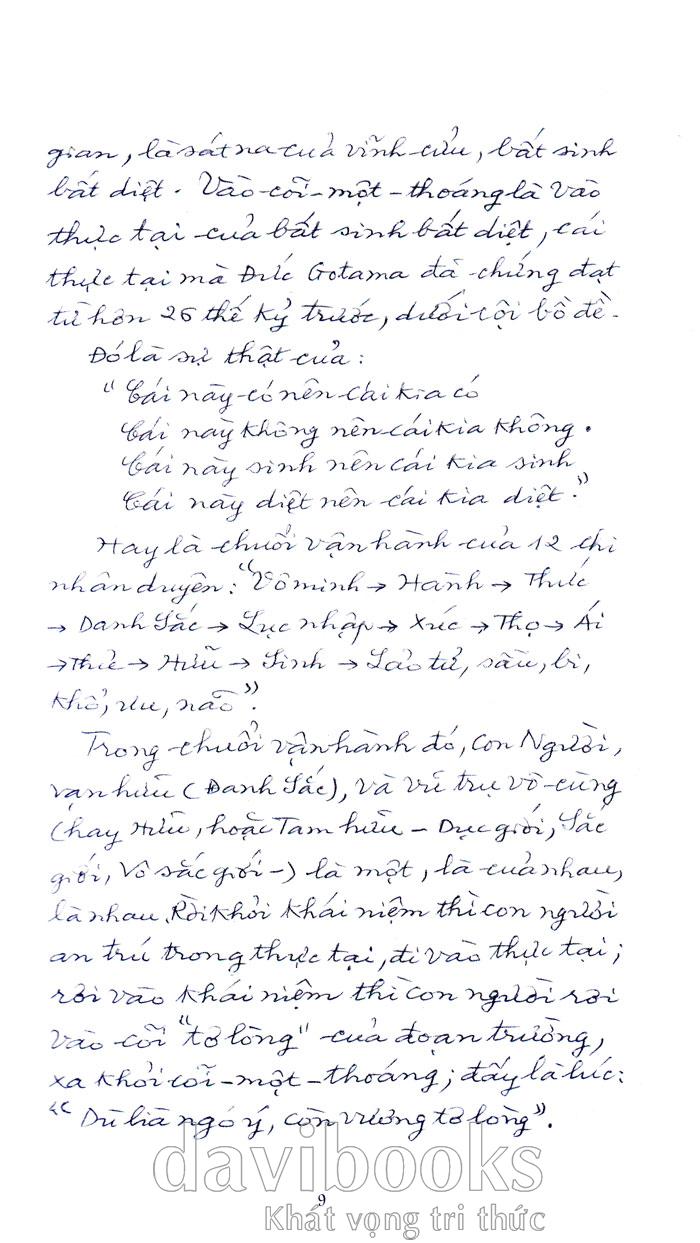 gian, là sát na của vĩnh cửu, bất sinh
bất diệt. Vào cõi-một-thoáng là vào
thực tại của bất sinh bất diệt, cái
thực tại mà Đức Gotama đã chứng đạt
từ hơn 26 thế kỷ trước, dưới cội bồ đề.
Đó là sự thật của:
"Cái này có nên cái kia có
Cái này không nên cái kia không.
Cái này sinh nên cái kia sinh
Cái này diệt nên cái kia diệt."
Hay là chuỗi vận hành của 12 chi
nhân duyên: "Vô minh → Hành → Thức
→ Danh Sắc → Lục nhập → Xúc → Thọ → Ái
→ Thủ → Hữu → Sinh → Lão tử, sầu, bi,
khổ, ưu, não".
Trong chuỗi vận hành đó, con Người,
vạn hữu (Danh Sắc), và vũ trụ vô cùng
(hay Hữu, hoặc Tam hữu - Dục giới, Sắc
giới, Vô sắc giới -) là một, là của nhau,
là nhau. Rời khỏi khái niệm thì con người
an trú trong thực tại, đi vào thực tại;
rơi vào khái niệm thì con người rơi
vào cõi "tơ lòng" của đoạn trường,
xa khỏi cõi-một-thoáng; đấy là lúc:
"Dù lìa ngó ý, còn vương tơ lòng".
davibooks
9
Khát vọng tri thức